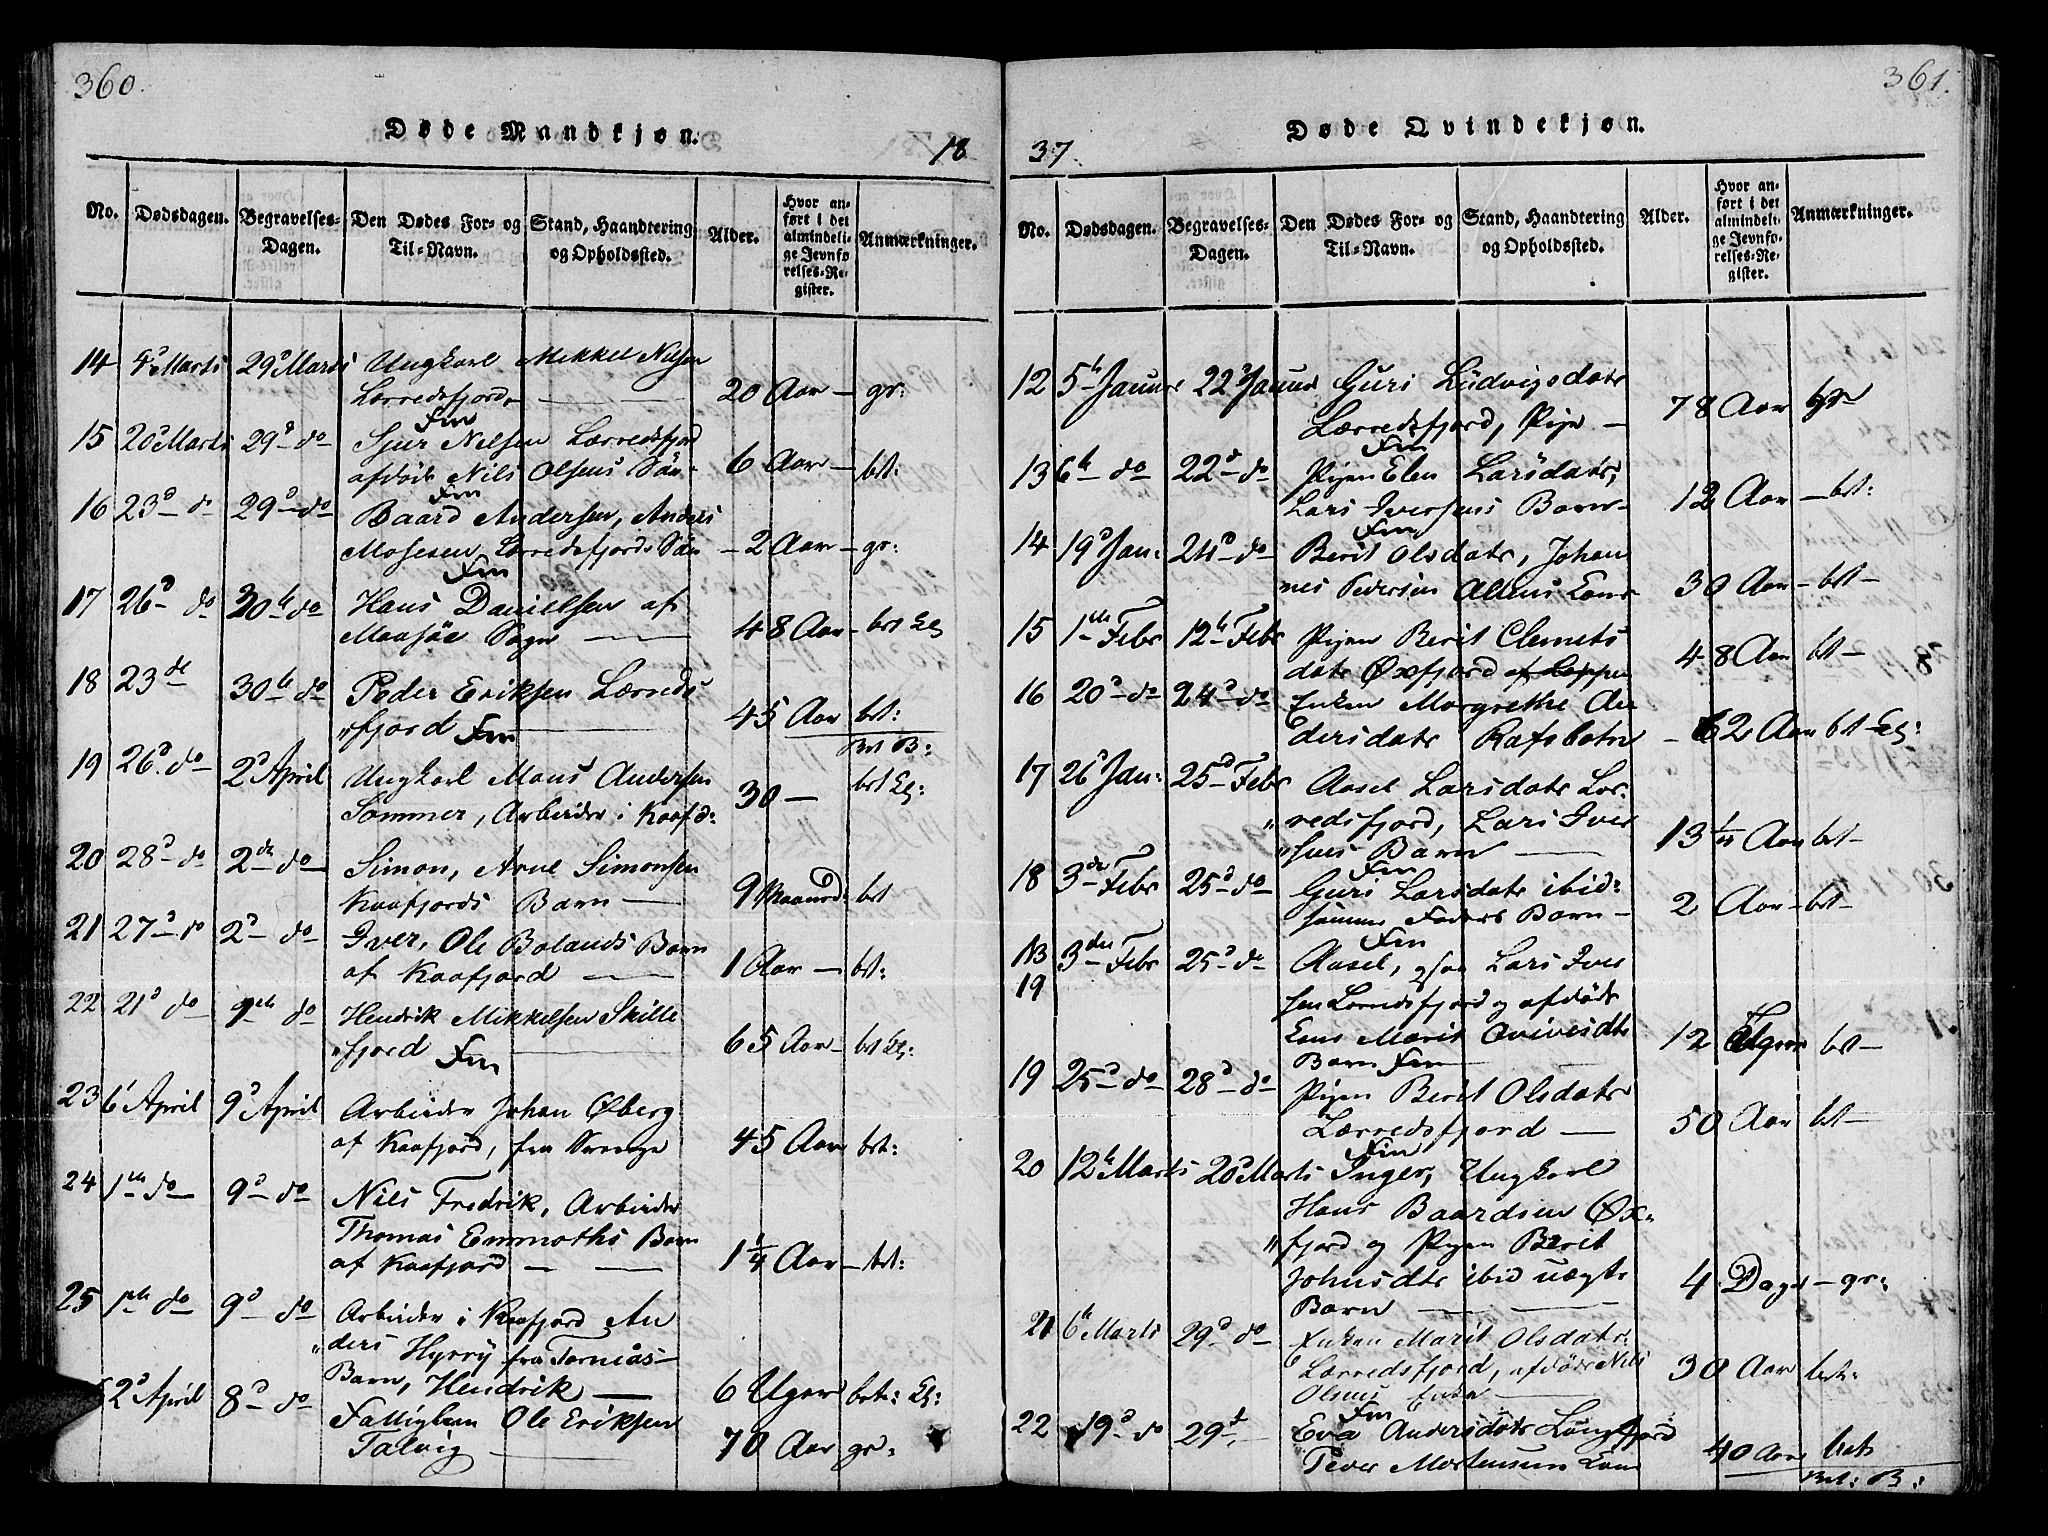 360.
Døde Mandkjøn.
18
No. Dødsdagen. Begravelses-Dagen. Den Dødes For- og Til-Navn. Stand, Haandtering og Opholdssted. Alder. Hvor anført i det almindelige Jevnførelses-Register. Anmærkninger.
14 4d Marts 29d Marts Ungkarl Mikkel Nilsen
Lerredsfjord 20 Aar gr:
Fin
15 20d Marts 29d do Sjur Nilsen Lærredsfjord
afdøde Nils Olsens Søn 6 Aar bst:
Fin
16 23d do 29d do Baard Andersen, Anders
Mosesen Lerredsfjords Søn 2 Aar gr:
Fin
17 26d do 30te do Hans Danielsen af
Maasøe Sogn 48 Aar bst Eg
18 23de 30te do Peder Eriksen Lerreds
fjord Fin 45 Aar bst:
Bst B:
19 26d. do 2d April Ungkarl Mons Andersen
Sommer, Arbeider i Kaafd: 30 bst Eg:
20 28d do 2de do Simon, Arne Simonsen
Kaafjords Barn 9 Maaned: bst
21 27d do 2d do Iver, Ole Bolands Barn
af Kaafjord 1 Aar bst:
22 21d do 9de do Hendrik Mikkelsen Skille
fjord Fin 65 Aar bst Eg:
23 6t April 9d April Arbeider Johan Øberg
af Kaafjord, fra Sverige 45 Aar bst:
24 1ste do 9d do Nils Fredrik, Arbeider
Thomas Emmoths Barn
af Kaafjord 1 1/4 Aar bst:
25 1ste do 9d do Arbeider i Kaafjord An
ders Hyrry fra Torneås
Barn, Hendrik 6 Uger bst: Eg:
2d April 8d do Fattiglem Ole Eriksen
Talvig 70 Aar gr:
361.
Døde Qvindekjøn.
37.
No. Dødsdagen. Begravelses-Dagen. Den Dødes For- og Til-Navn. Stand, Haandtering og Opholdssted. Alder. Hvor anført i det almindelige Jevnførelses-Register. Anmærkninger.
12 5te Januar 22d Januar Guri Ludvigsdatr
Lærredsfjord, Pige 78 Aar gr
Fin
13 6te do 22d do Pigen Elen Larsdatr,
Lars Iversens Barn 12 Aar bst:
Fin
14 19d Jan: 24d do Berit Olsdatr, Johan
nes Pedersen Altens Kone 30 Aar bst
15 1ste Febr 12te Febr Pigen Berit Clemets
datr Øxfjord 48 Aar bst
16 20d do 24d do Enken Margrethe An
dersdatr Rafsbotn 62 Aar bst Eg:
17 26d Jan: 25d Febr Aasel Larsdatr Ler
redsfjord, Lars Iver
sens Barn 13 1/4 Aar bst
Fin
18 3de Febr 25d do Guri Larsdatr ibid:
samme Faders Barn 2 Aar bst
Fin
NB 3die Febr 25d do Aasel, Lars Iver
19 sen Lerredsfjord og afdøde
Kone Marit Ivirsdtr
Barn Fin 12 Uger bst
19 25d do 28d do Pigen Berit Olsdatr
Lærredsfjord 50 Aar bst
Fin
20 12te Marts 20d Marts Inger, Ungkarl
Hans Baardsen Øx
fjord og Pigen Berit
Johnsdtr ibid uægte
Barn 4 Dage gr:
21 6te Marts 29d do Enken Marit Olsdatr:
Lærredsfjord, afdøde Nils
Olsens Enke 30 Aar bst:
Fin
22 19d do 29d Eva Andersdatr Langfjord
Peder Mortensens Kone 40 Aar bst
Bst: B: